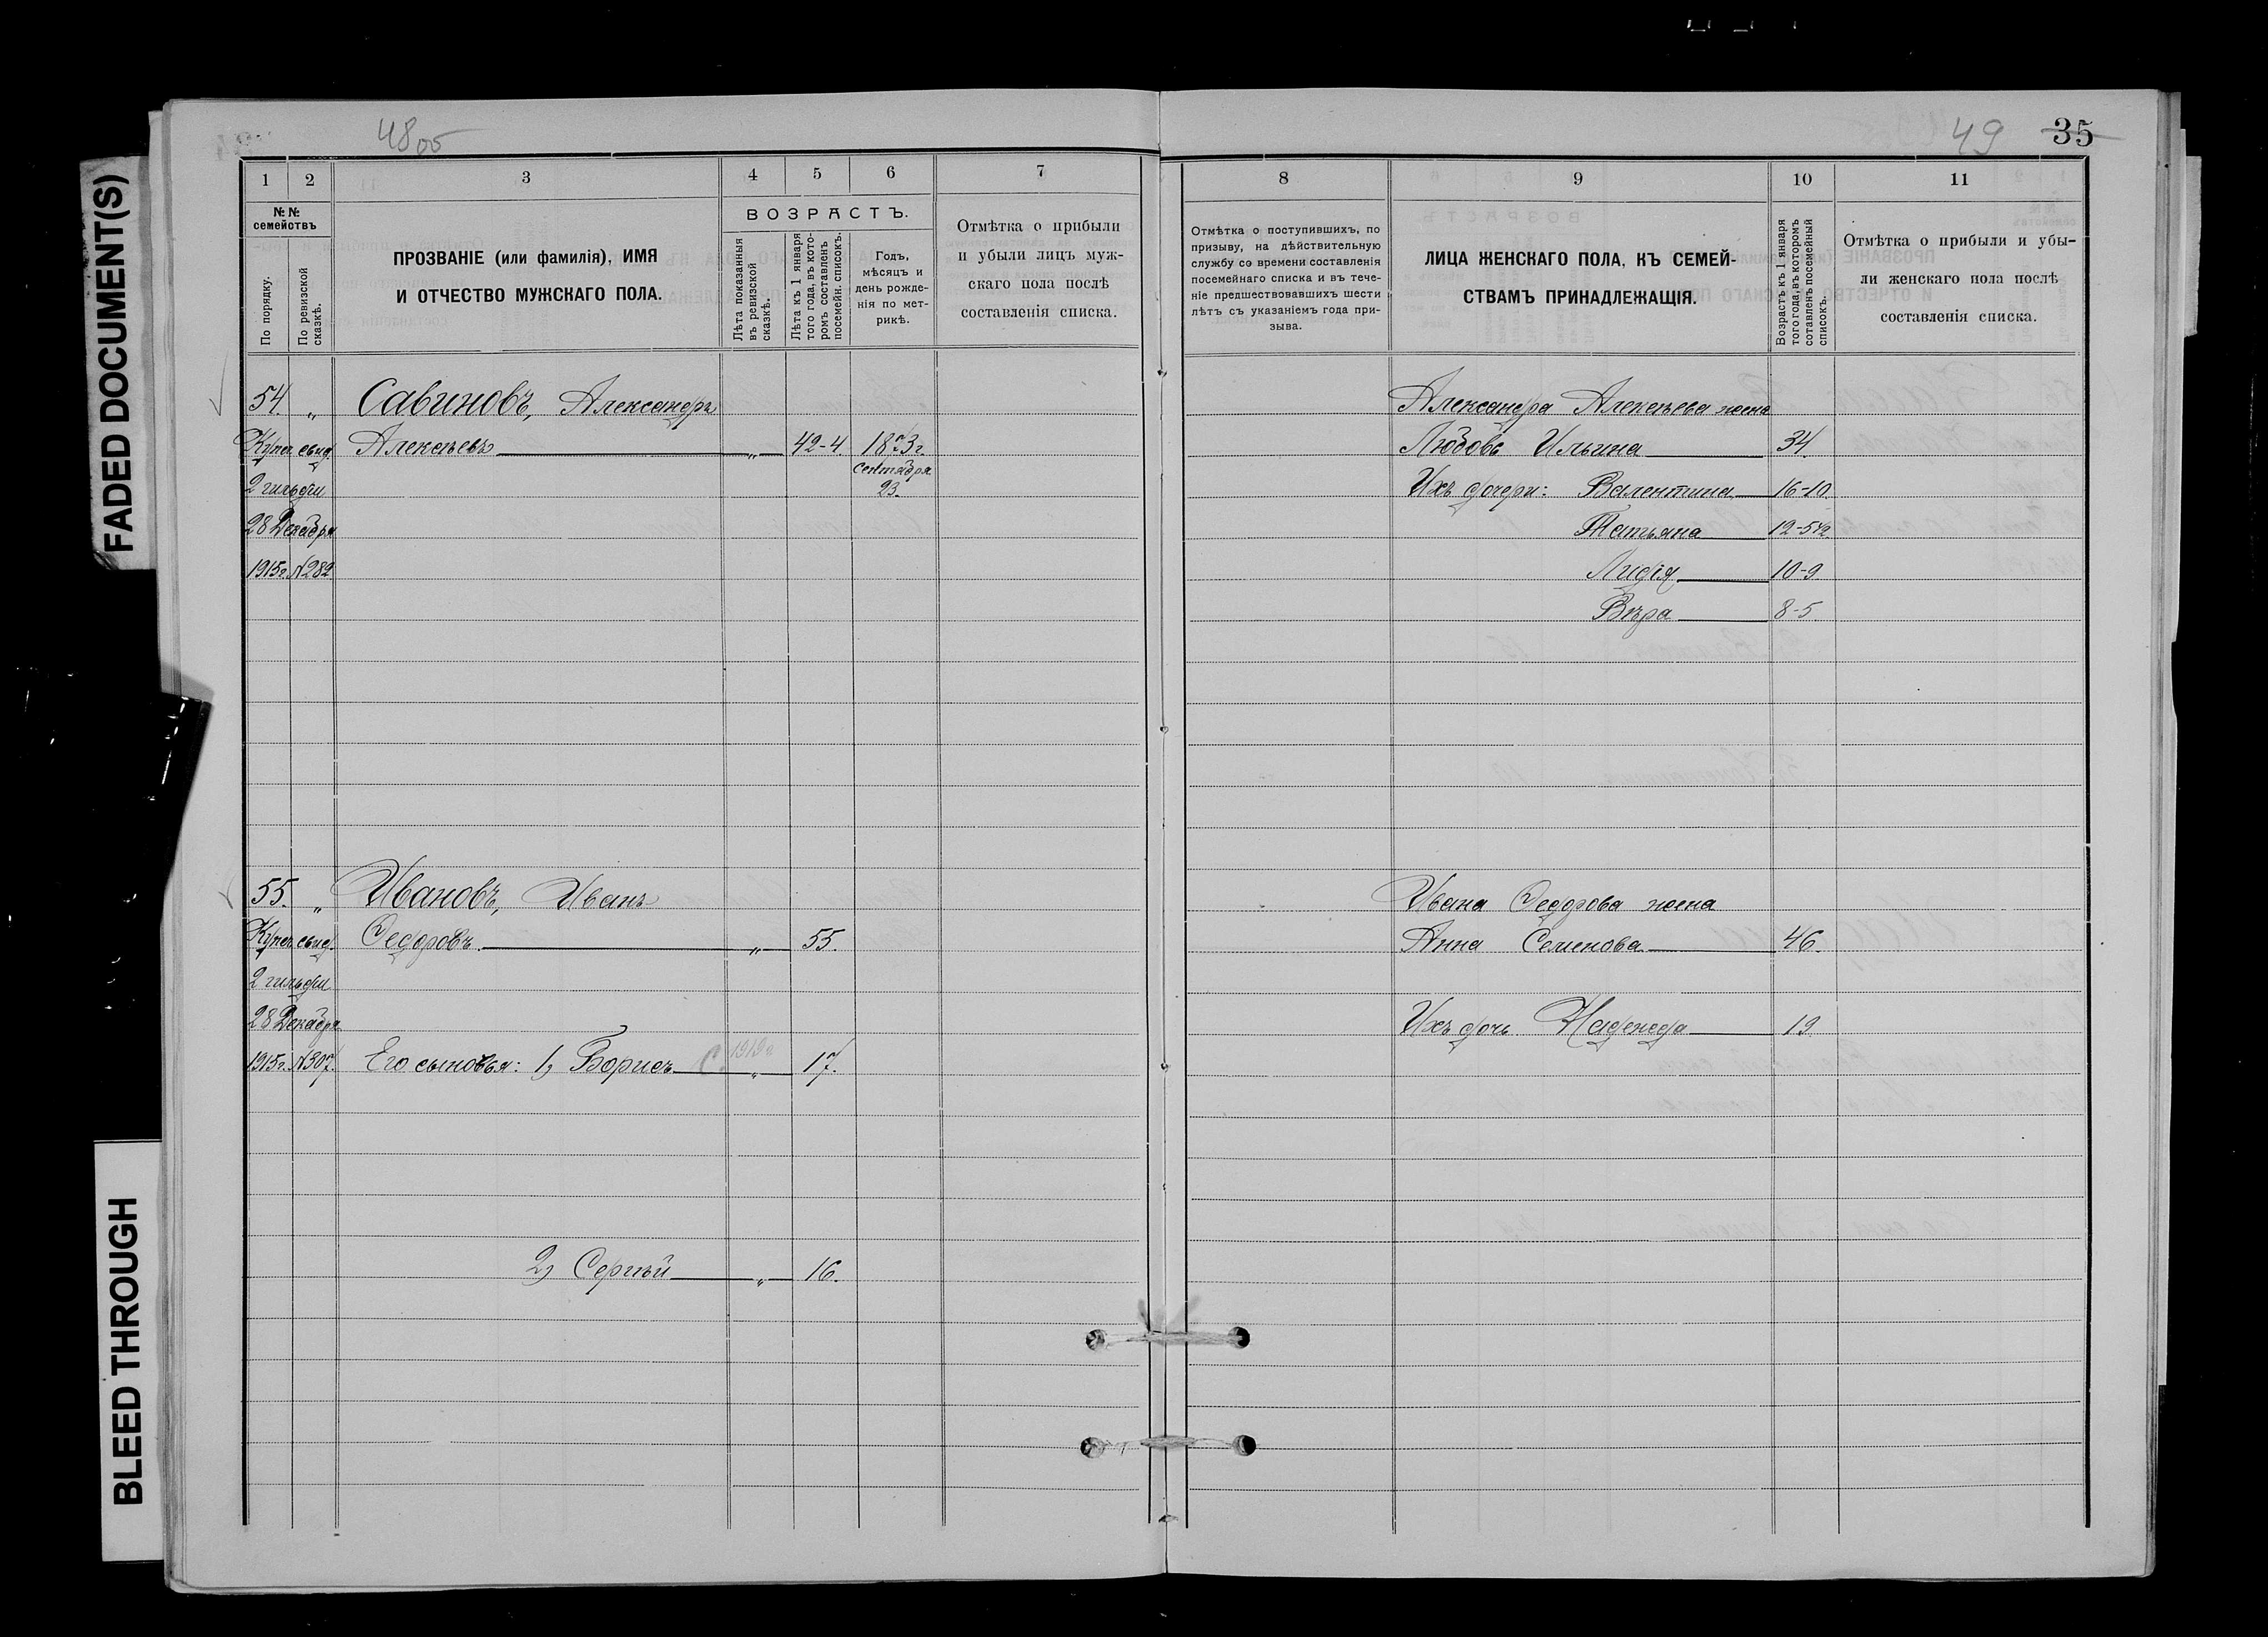 FADED DOCUMENT(S)
BLEED THROUGH
48об
49 35
1 2 3 4 5 6 7
№№ семействъ
По порядку.
По ревизской сказкѣ.
ПРОЗВАНІЕ (или фамилія), ИМЯ
И ОТЧЕСТВО МУЖСКАГО ПОЛА.
ВОЗРАСТЪ.
Лѣта показанныя
въ ревизской
сказкѣ.
Лѣта къ 1 января
того года, въ кото-
ромъ составленъ
посемейн. списокъ.
Годъ,
мѣсяцъ и
день рожде-
нія по мет-
рикѣ.
Отмѣтка о прибыли
и убыли лицъ муж-
скаго пола послѣ
составленія списка.
54 „ Савиновъ, Александръ
Купеч. свид. Алексѣевъ „ 42-4. 1873г.
сентября
2 гильдіи 23.
28 Декабря
1915г. №282
55. „ Ивановъ, Иванъ
Купеч. свид. Ѳедоровъ. „ 55.
2 гильдіи
28 Декабря
1915г. №307. Его сыновья: 1) Борисъ 1919г „ 17.
2) Сергѣй „ 16.
8 9 10 11
Отмѣтка о поступившихъ, по
призыву, на дѣйствительную
службу со времени составленія
посемейнаго списка и въ тече-
ніе предшествовавшихъ шести
лѣтъ съ указаніемъ года при-
зыва.
ЛИЦА ЖЕНСКАГО ПОЛА, КЪ СЕМЕЙ-
СТВАМЪ ПРИНАДЛЕЖАЩІЯ.
Возрастъ къ 1 января
того года, въ которомъ
составленъ посемейный
списокъ.
Отмѣтка о прибыли и убы-
ли женскаго пола послѣ
составленія списка.
Александра Алексѣева жена
Любовь Ильина 34.
Ихъ дочери: Валентина 16-10
Татьяна 12-5½
Лидія 10-9
Вѣра 8-5.
Ивана Ѳедорова жена
Анна Семенова 46.
Ихъ дочь Надежда 19.